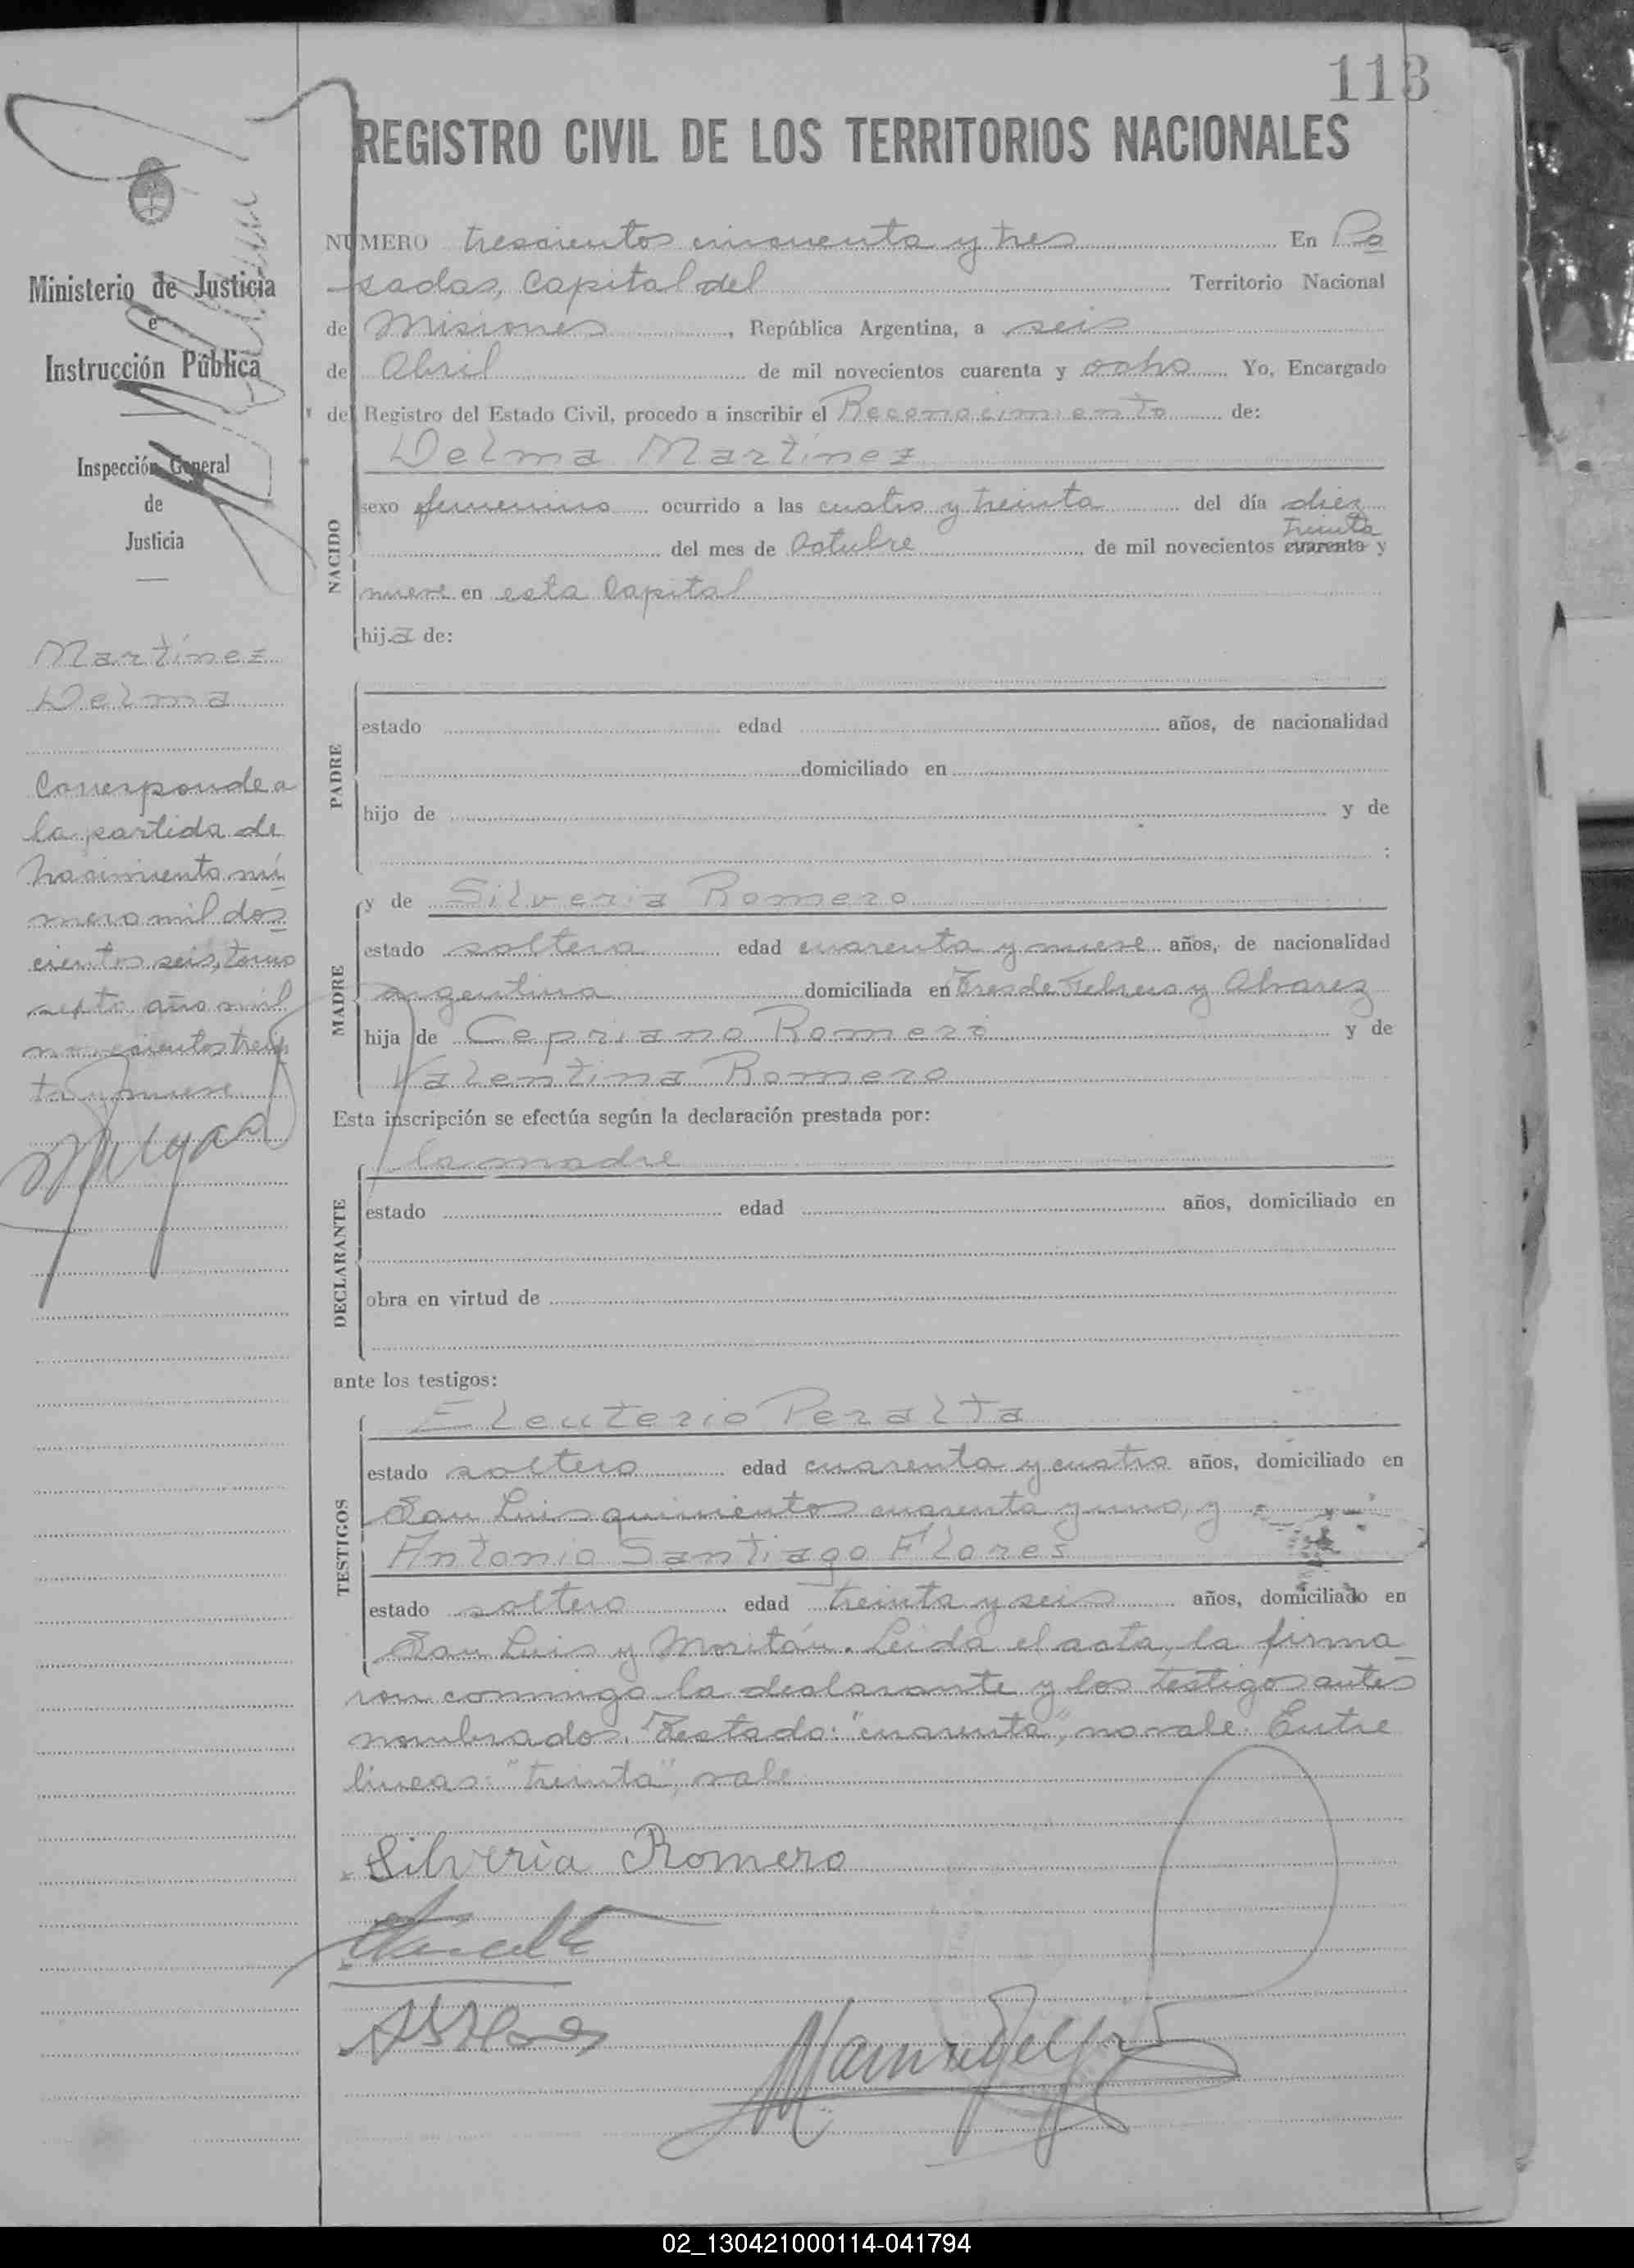 113
REGISTRO CIVIL DE LOS TERRITORIOS NACIONALES
Ministerio de Justicia
e
Instrucción Pública
Inspección General
de
Justicia
Martínez
Delma
Corresponde a
la partida de
nacimiento nú
mero mil dos
cientos seis, tomo
sexto año mil
novecientos trein
ta y nueve
NÚMERO trescientos cincuenta y tres En Po
sadas, Capital del Territorio Nacional
de Misiones, República Argentina, a seis
de Abril de mil novecientos cuarenta y ocho Yo, Encargado
del Registro del Estado Civil, procedo a inscribir el Reconocimiento de:
Delma Martínez
NACIDO
sexo femenino ocurrido a las cuatro y treinta del día diez
treinta
del mes de Octubre de mil novecientos cuarenta y
nueve en esta Capital
hija de:
PADRE
estado edad años, de nacionalidad
domiciliado en
hijo de y de
:
MADRE
y de Silveria Romero
estado soltera edad cuarenta y nueve años, de nacionalidad
argentina domiciliada en Tres de Febrero y Alvarez
hija de Cepriano Romero y de
Valentina Romero
Esta inscripción se efectúa según la declaración prestada por:
la madre
DECLARANTE
estado edad años, domiciliado en
obra en virtud de
ante los testigos:
TESTIGOS
Eleuterio Peralta
estado soltero edad cuarenta y cuatro años, domiciliado en
San Luis quinientos cuarenta y uno, y
Antonio Santiago Flores
estado soltero edad treinta y seis años, domiciliado en
San Luis y Moritán. Leida el acta, la firma
ron conmigo la declarante y los testigos antes
nombrados. Testado: "cuarenta", no vale. Entre
líneas: "treinta", vale
Silveria Romero
02_130421000114-041794